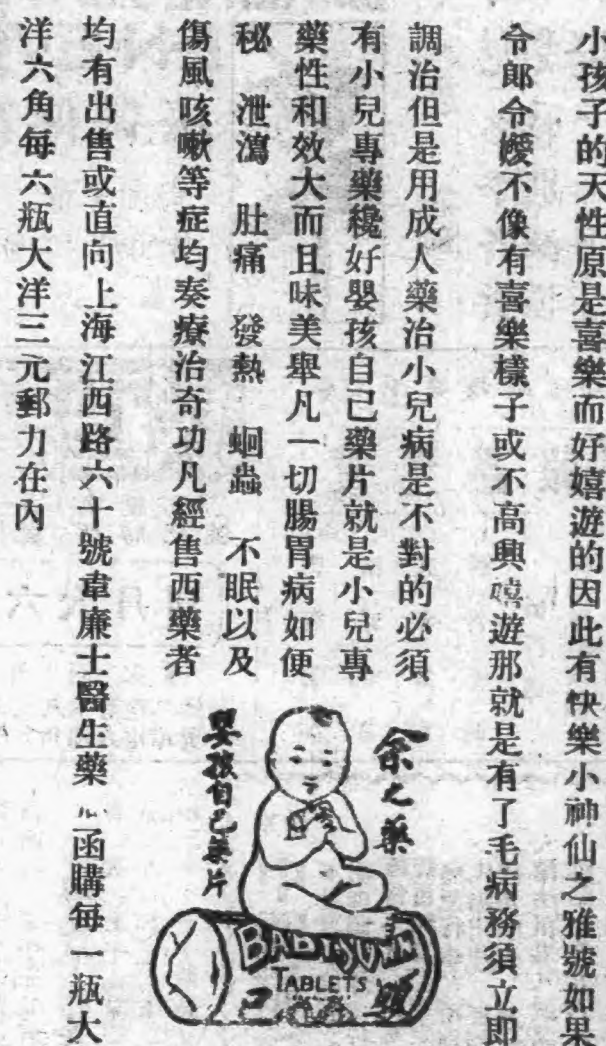 小孩子的天性原是喜樂而好嬉遊的因此有快樂小神仙之雅號如果
令郎令嬡不像有喜樂樣子或不高興嬉遊那就是有了毛病務須立即
調治但是用成人藥治小兒病是不對的必須
有小兒專藥纔好嬰孩自己藥片就是小兒專
藥性和效大而且味美舉凡一切腸胃病如便
秘 泄瀉 肚痛 發熱 蛔蟲 不眠以及
傷風咳嗽等症均奏療治奇功凡經售西藥者
均有出售或直向上海江西路六十號韋廉士醫生藥 函購每一瓶大
洋六角每六瓶大洋三元郵力在內
余之藥
嬰孩自己藥片
TABLETS